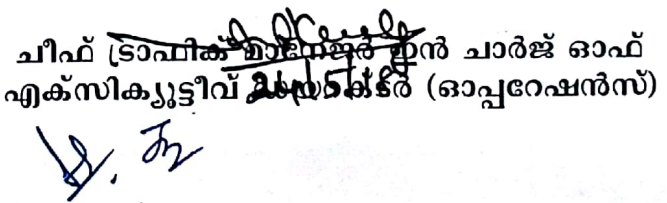 ചീഫ് ട്രാഫിക് മാനേജർ ഇൻ ചാർജ് ഓഫ്
എക്സിക്യുട്ടീവ് ഡയറക്ടർ (ഓപ്പറേഷൻസ്)